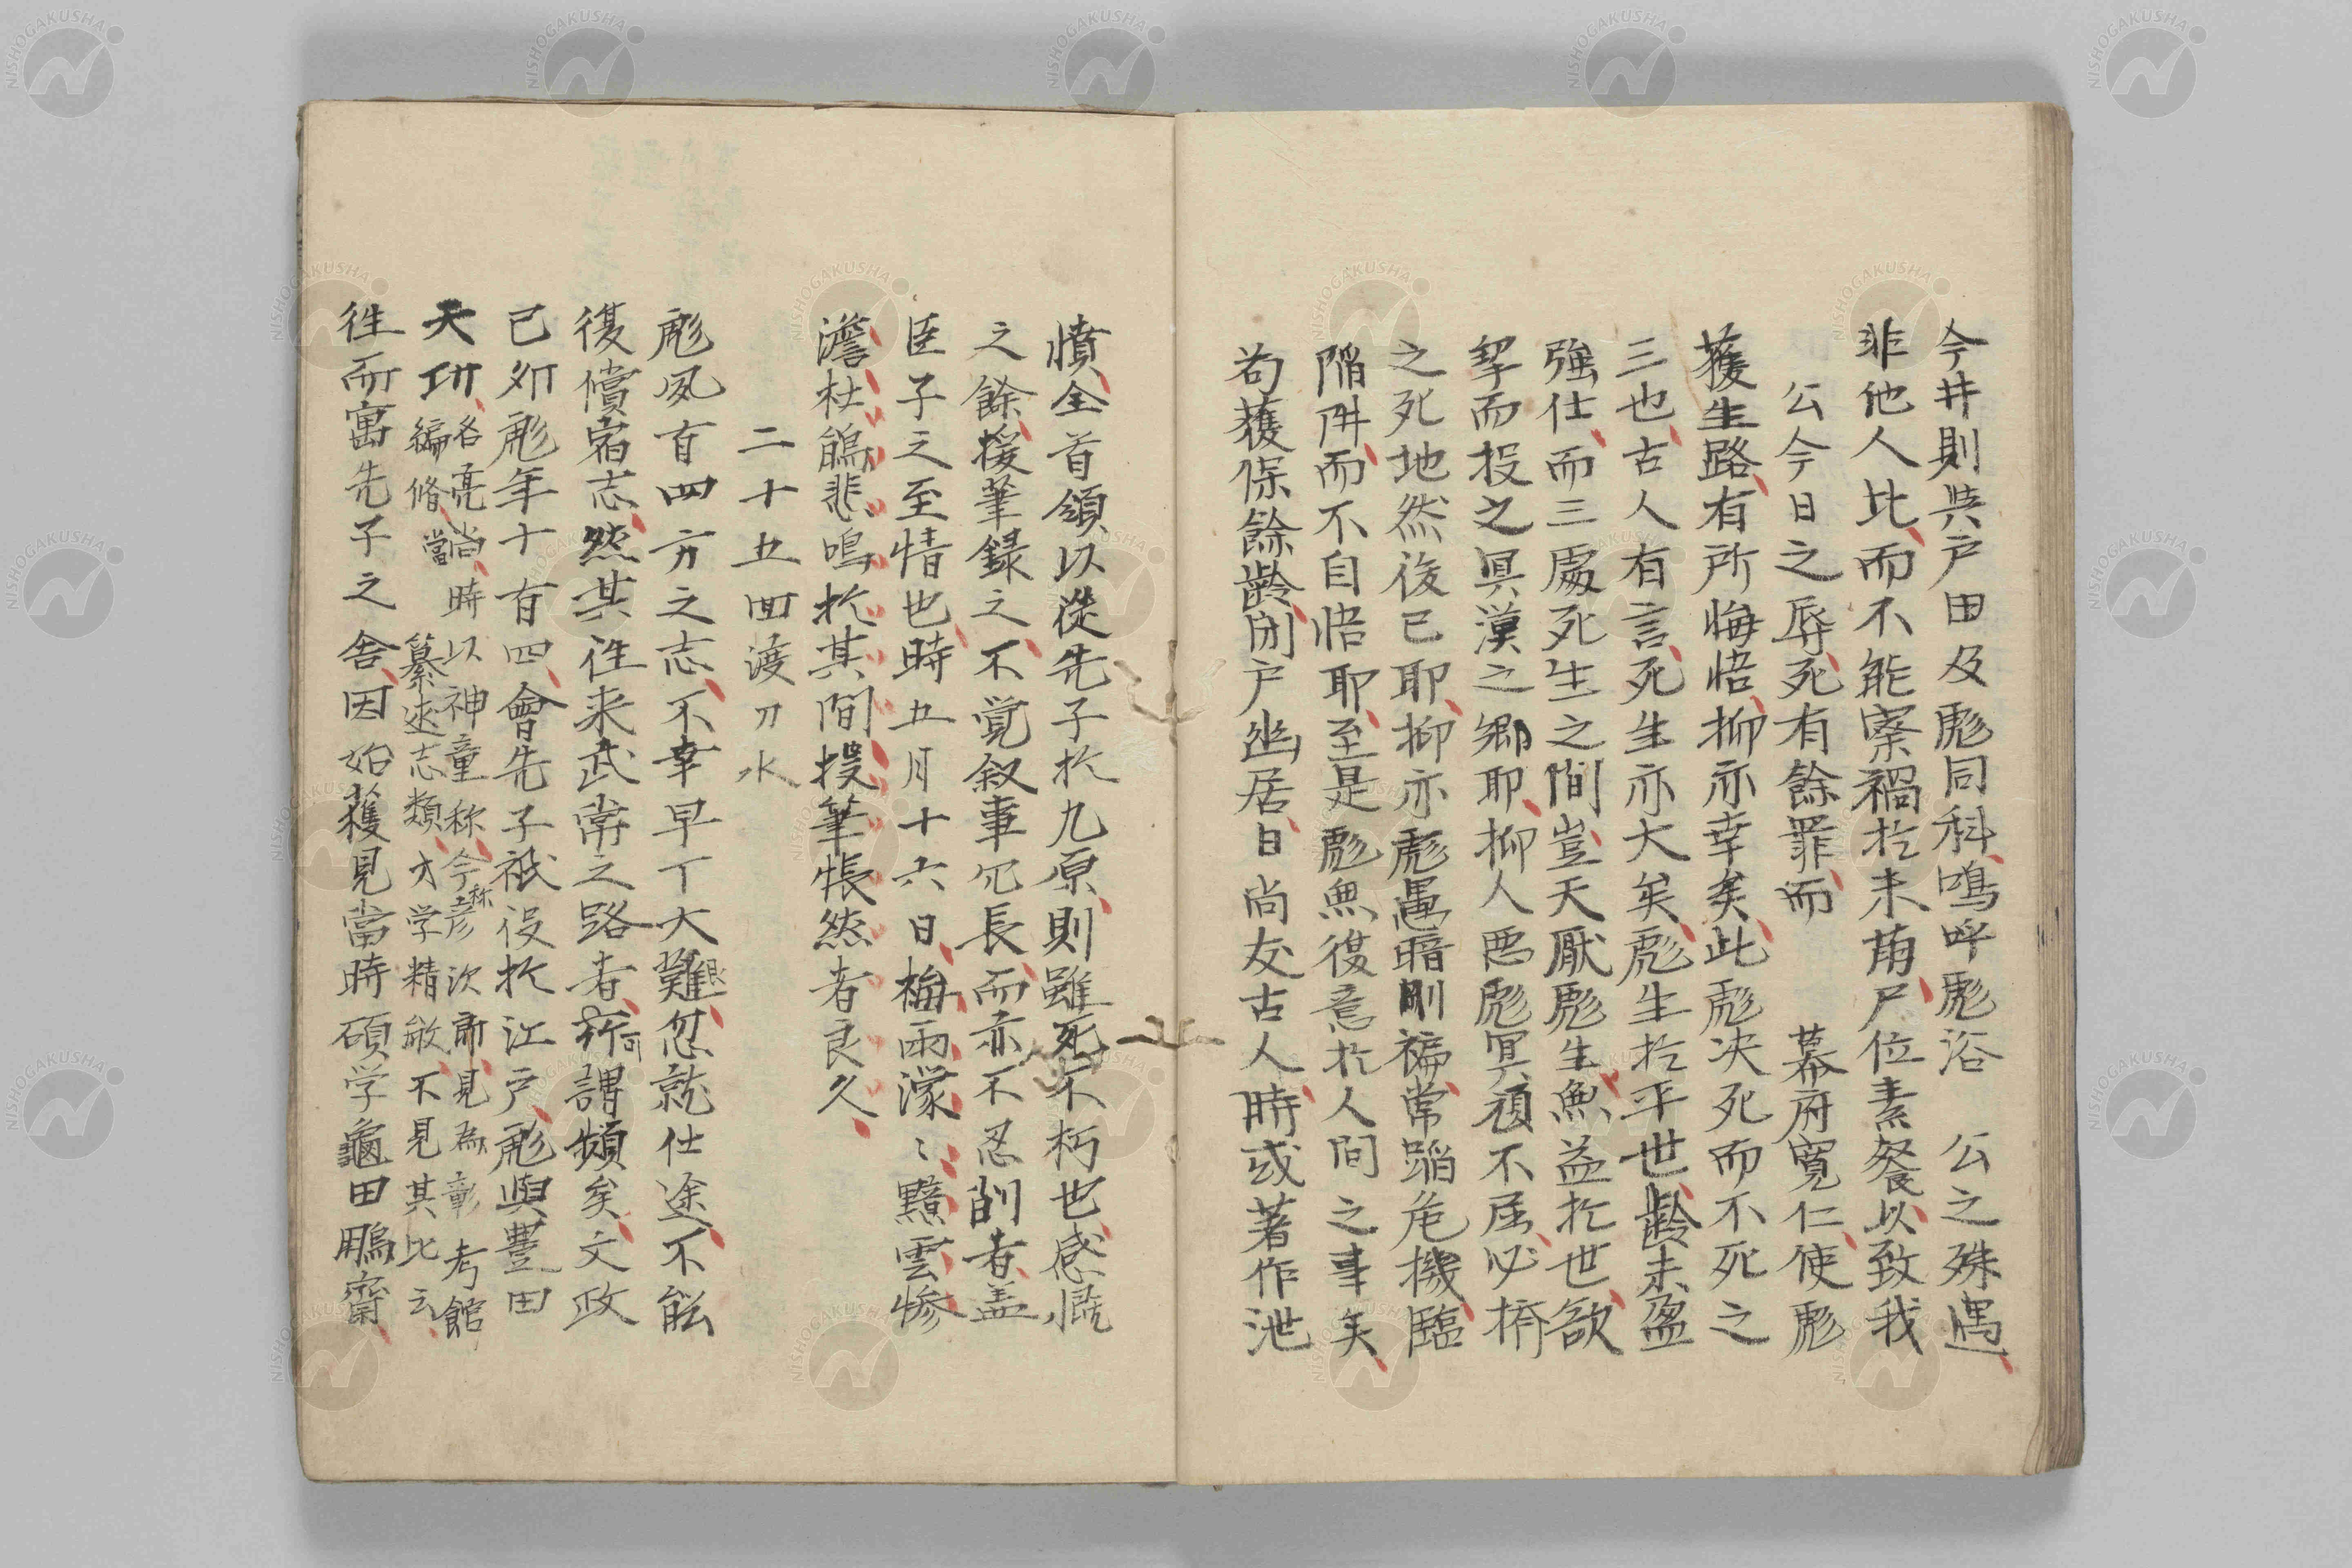 今井則与戸田及彪同科嗚呼彪浴　公之殊遇
非他人比而不能察禍於未萠尸位素餐以致我
公今日之辱死有餘罪而　幕府寛仁使彪
獲生路有所悔悟抑亦幸矣此彪决死而不死之
三也古人有言死生亦大矣彪生於平世齢未盈
強仕而三處死生之間豈天厭彪生無益於世欲
挐而投之冥漠之郷耶抑人悪彪冥頑不屈必擠
之死地然後已耶抑亦彪愚暗剛褊常蹈危機臨
陥阱而不自悟耶至是彪無復意於人間之事矣
苟獲保餘齢閉戸屏居日尚友古人時或著作泄
憤全首領以從先子於九原則雖死不朽也感慨
之餘援筆録之不覚叙事冗長而亦不忍削者盖
臣子之至情也時五月十六日梅雨濛〻黯雲惨
澹杜鵑悲鳴於其間投筆悵然者良久
二十五回渡刀水
彪夙有四方之志不幸早丁大艱忽就仕途不能
復償宿志然其往来武常之路者所謂頻矣文政
己夘彪年十有四會先子祗役於江戸彪與豊田
天功
名亮尚時以神童称今称彦次郎見為彰考館
編脩當纂述志類才学精敏不見其比云
往而寓先子之舎因始獲見當時碩学龜田鵬齋
NISHOGAKUSHA